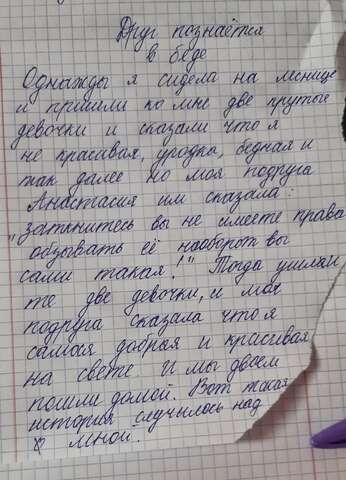 Друг познаётся
в беде
Однажды я сидела на леснице
и пришли ко мне две крутые
девочки и сказали что я
не красивая, уродка, бедная и
так далее но моя подруга
Анастасия им сказала:
"заткнитесь вы не имеете права
обзывать её наоборот вы
сами такая!" Тогда ушли
те две девочки, и моя
подруга сказала что я
самая добрая и красивая
на свете И мы двоем
пошли домой. Вот такая
история случилось над
мной.